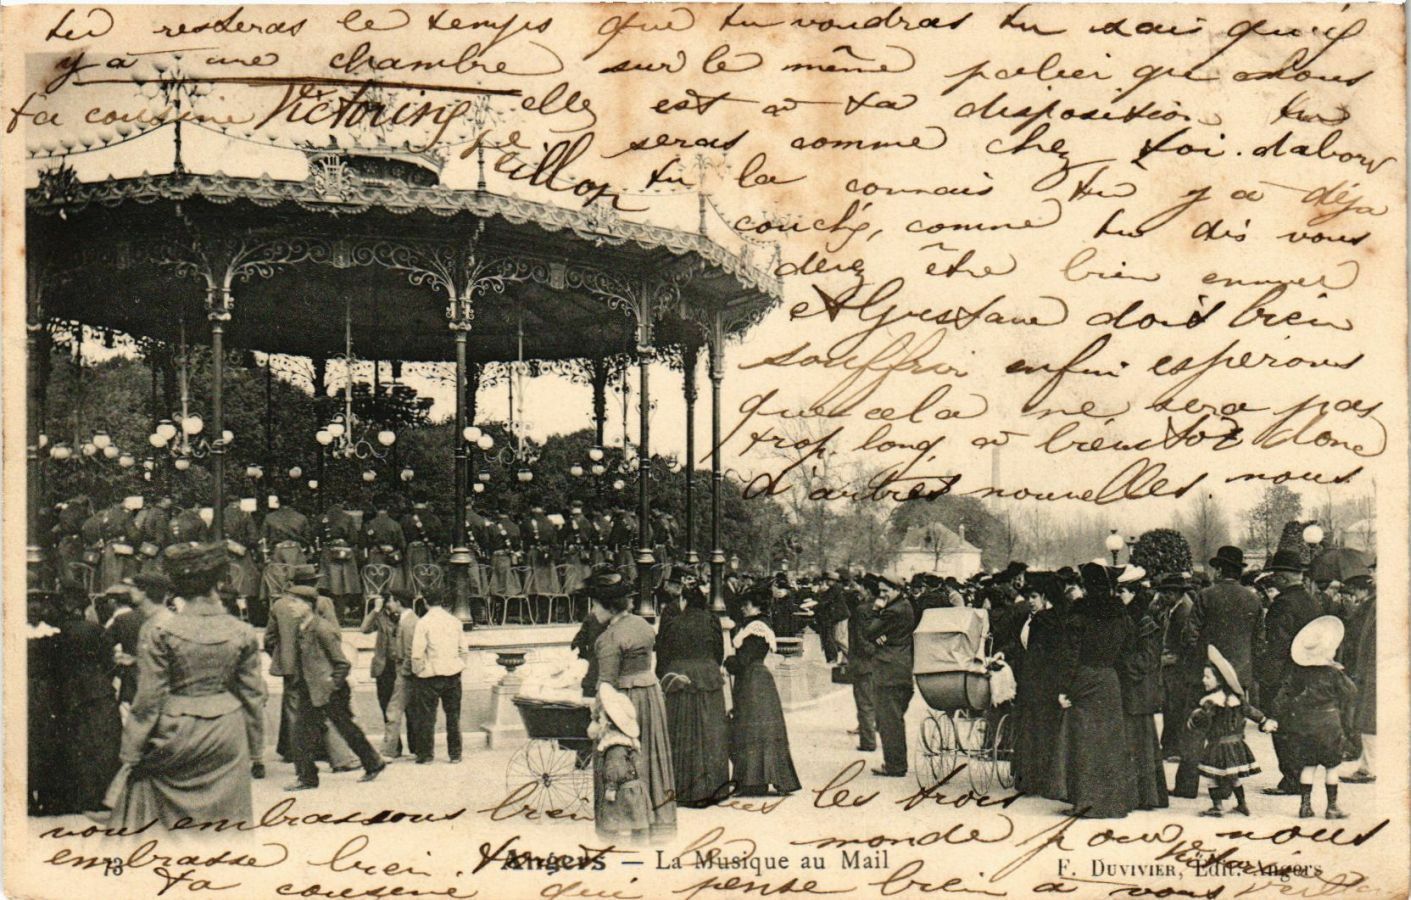 tu resteras le temps que tu voudras tu sais qu'il
y a une chambre sur le même palier que nous
elle est à ta disposition tu
seras comme chez toi. dabord
tu la connais tu y a déja
couché, comme tu dis vous
devez être bien ennuyé
et doit bien
souffrir enfin espérons
que cela ne sera pas
trop long, à bientôt donc
d'autres nouvelles. nous
vous embrassons bien tous les trois
embrasse bien tout le monde pour nous
ta cousine qui pense bien à vous
ta cousine Victorine
73 Angers — La Musique au Mail
F. Duvivier, Édit. Angers